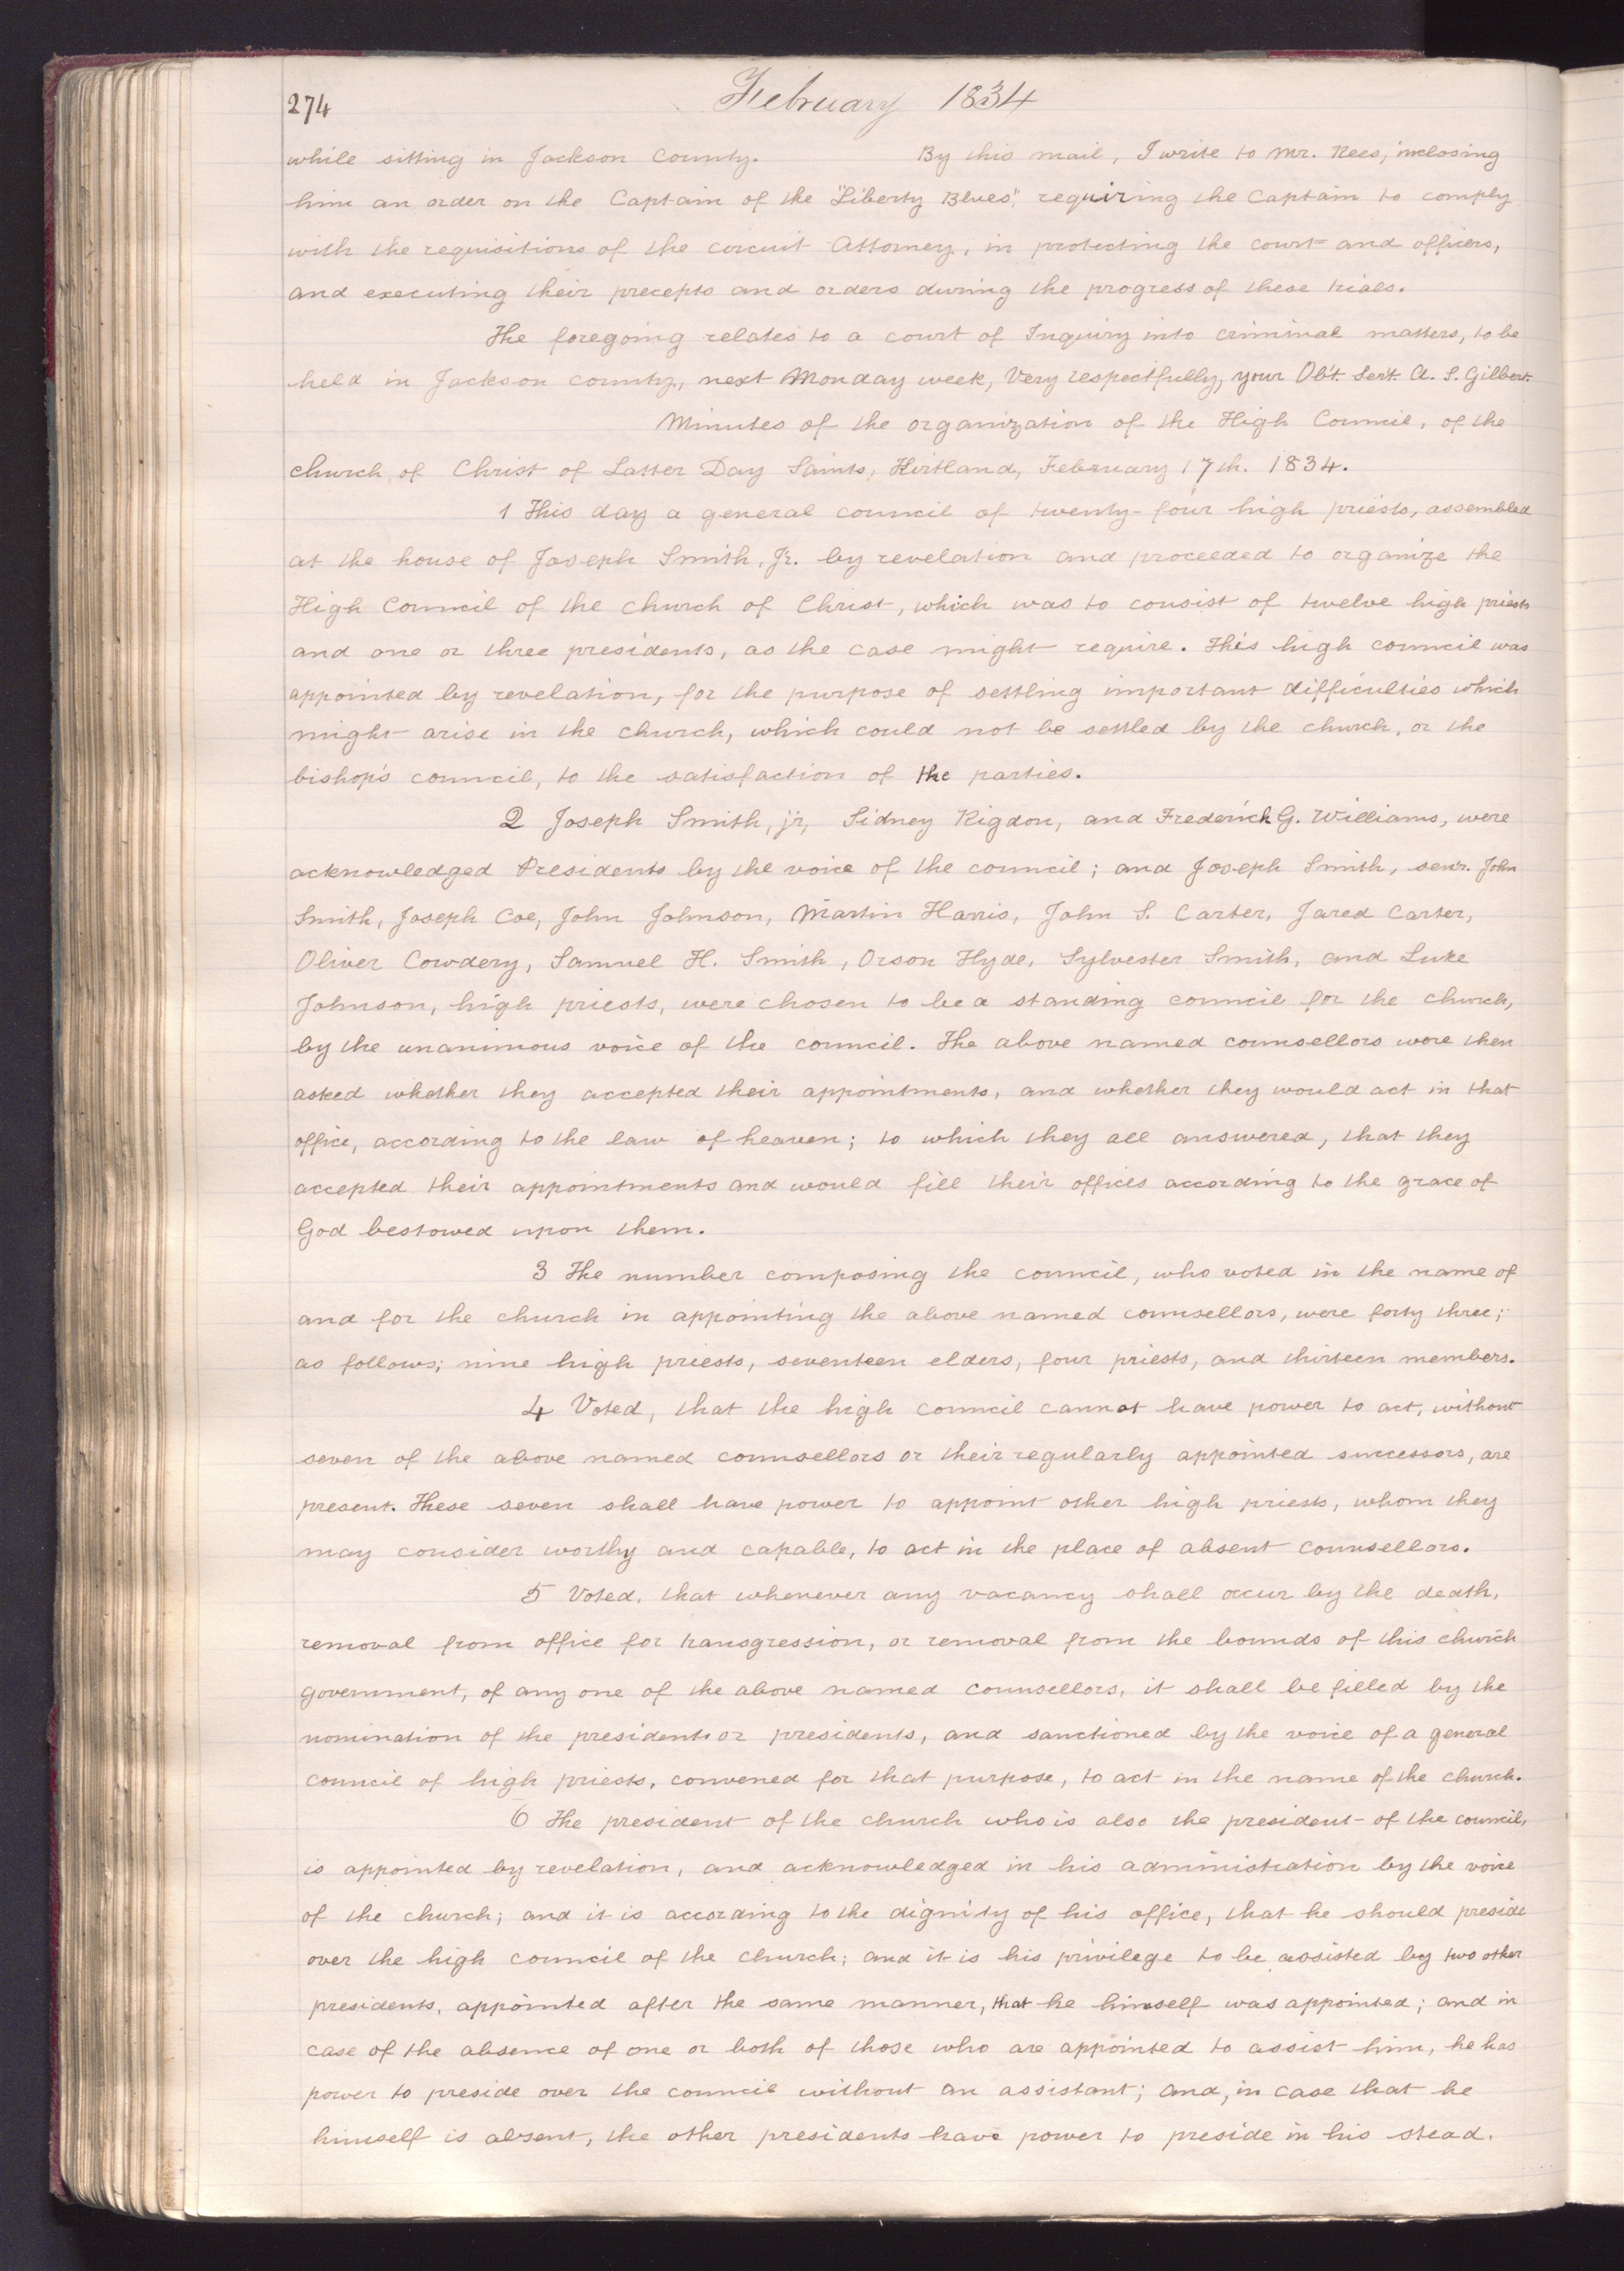 274
February 1834
while sitting in Jackson County. By this mail, I write to Mr. Rees, inclosing
him an order on the Captain of the "Liberty Blues", requiring the Captain to comply
with the requisitions of the circuit Attorney, in protecting the court and officers,
and executing their precepts and orders during the progress of these trials.
The foregoing relates to a court of Inquiry into criminal matters, to be
held in Jackson county, next Monday week, Very respectfully, your Obt. Servt. A. S. Gilbert.
Minutes of the organization of the High Council, of the
church of Christ of Latter Day Saints, Kirtland, February 17th. 1834.
1 This day a general council of twenty-four high priests, assembled
at the house of Joseph Smith, Jr. by revelation and proceeded to organize the
High Council of the church of Christ, which was to consist of twelve high priests
and one or three presidents, as the case might require. This high council was
appointed by revelation, for the purpose of settling important difficulties which
might arise in the church, which could not be settled by the church, or the
bishop's council, to the satisfaction of the parties.
2 Joseph Smith, jr, Sidney Rigdon, and Frederick G. Williams, were
acknowledged Presidents by the voice of the council; and Joseph Smith, senr. John
Smith, Joseph Coe, John Johnson, Martin Harris, John S. Carter, Jared Carter,
Oliver Cowdery, Samuel H. Smith, Orson Hyde, Sylvester Smith, and Luke
Johnson, high priests, were chosen to be a standing council for the church,
by the unanimous voice of the council. The above named counsellors were then
asked whether they accepted their appointments, and whether they would act in that
office, according to the law of heaven; to which they all answered, that they
accepted their appointments and would fill their offices according to the grace of
God bestowed upon them.
3 The number composing the council, who voted in the name of
and for the church in appointing the above named counsellors, were forty three;
as follows; nine high priests, seventeen elders, four priests, and thirteen members.
4 Voted, that the high council cannot have power to act, without
seven of the above named counsellors or their regularly appointed successors, are
present. These seven shall have power to appoint other high priests, whom they
may consider worthy and capable, to act in the place of absent counsellors.
5 Voted, that whenever any vacancy shall occur by the death,
removal from office for transgression, or removal from the bounds of this church
government, of any one of the above named counsellors, it shall be filled by the
nomination of the presidents or presidents, and sanctioned by the voice of a general
council of high priests, convened for that purpose, to act in the name of the church.
6 The president of the church who is also the president of the council,
is appointed by revelation, and acknowledged in his administration by the voice
of the church; and it is according to the dignity of his office, that he should preside
over the high council of the church; and it is his privilege to be assisted by two other
presidents, appointed after the same manner, that he himself was appointed; and in
case of the absence of one or both of those who are appointed to assist him, he has
power to preside over the council without an assistant; and, in case that he
himself is absent, the other presidents have power to preside in his stead.